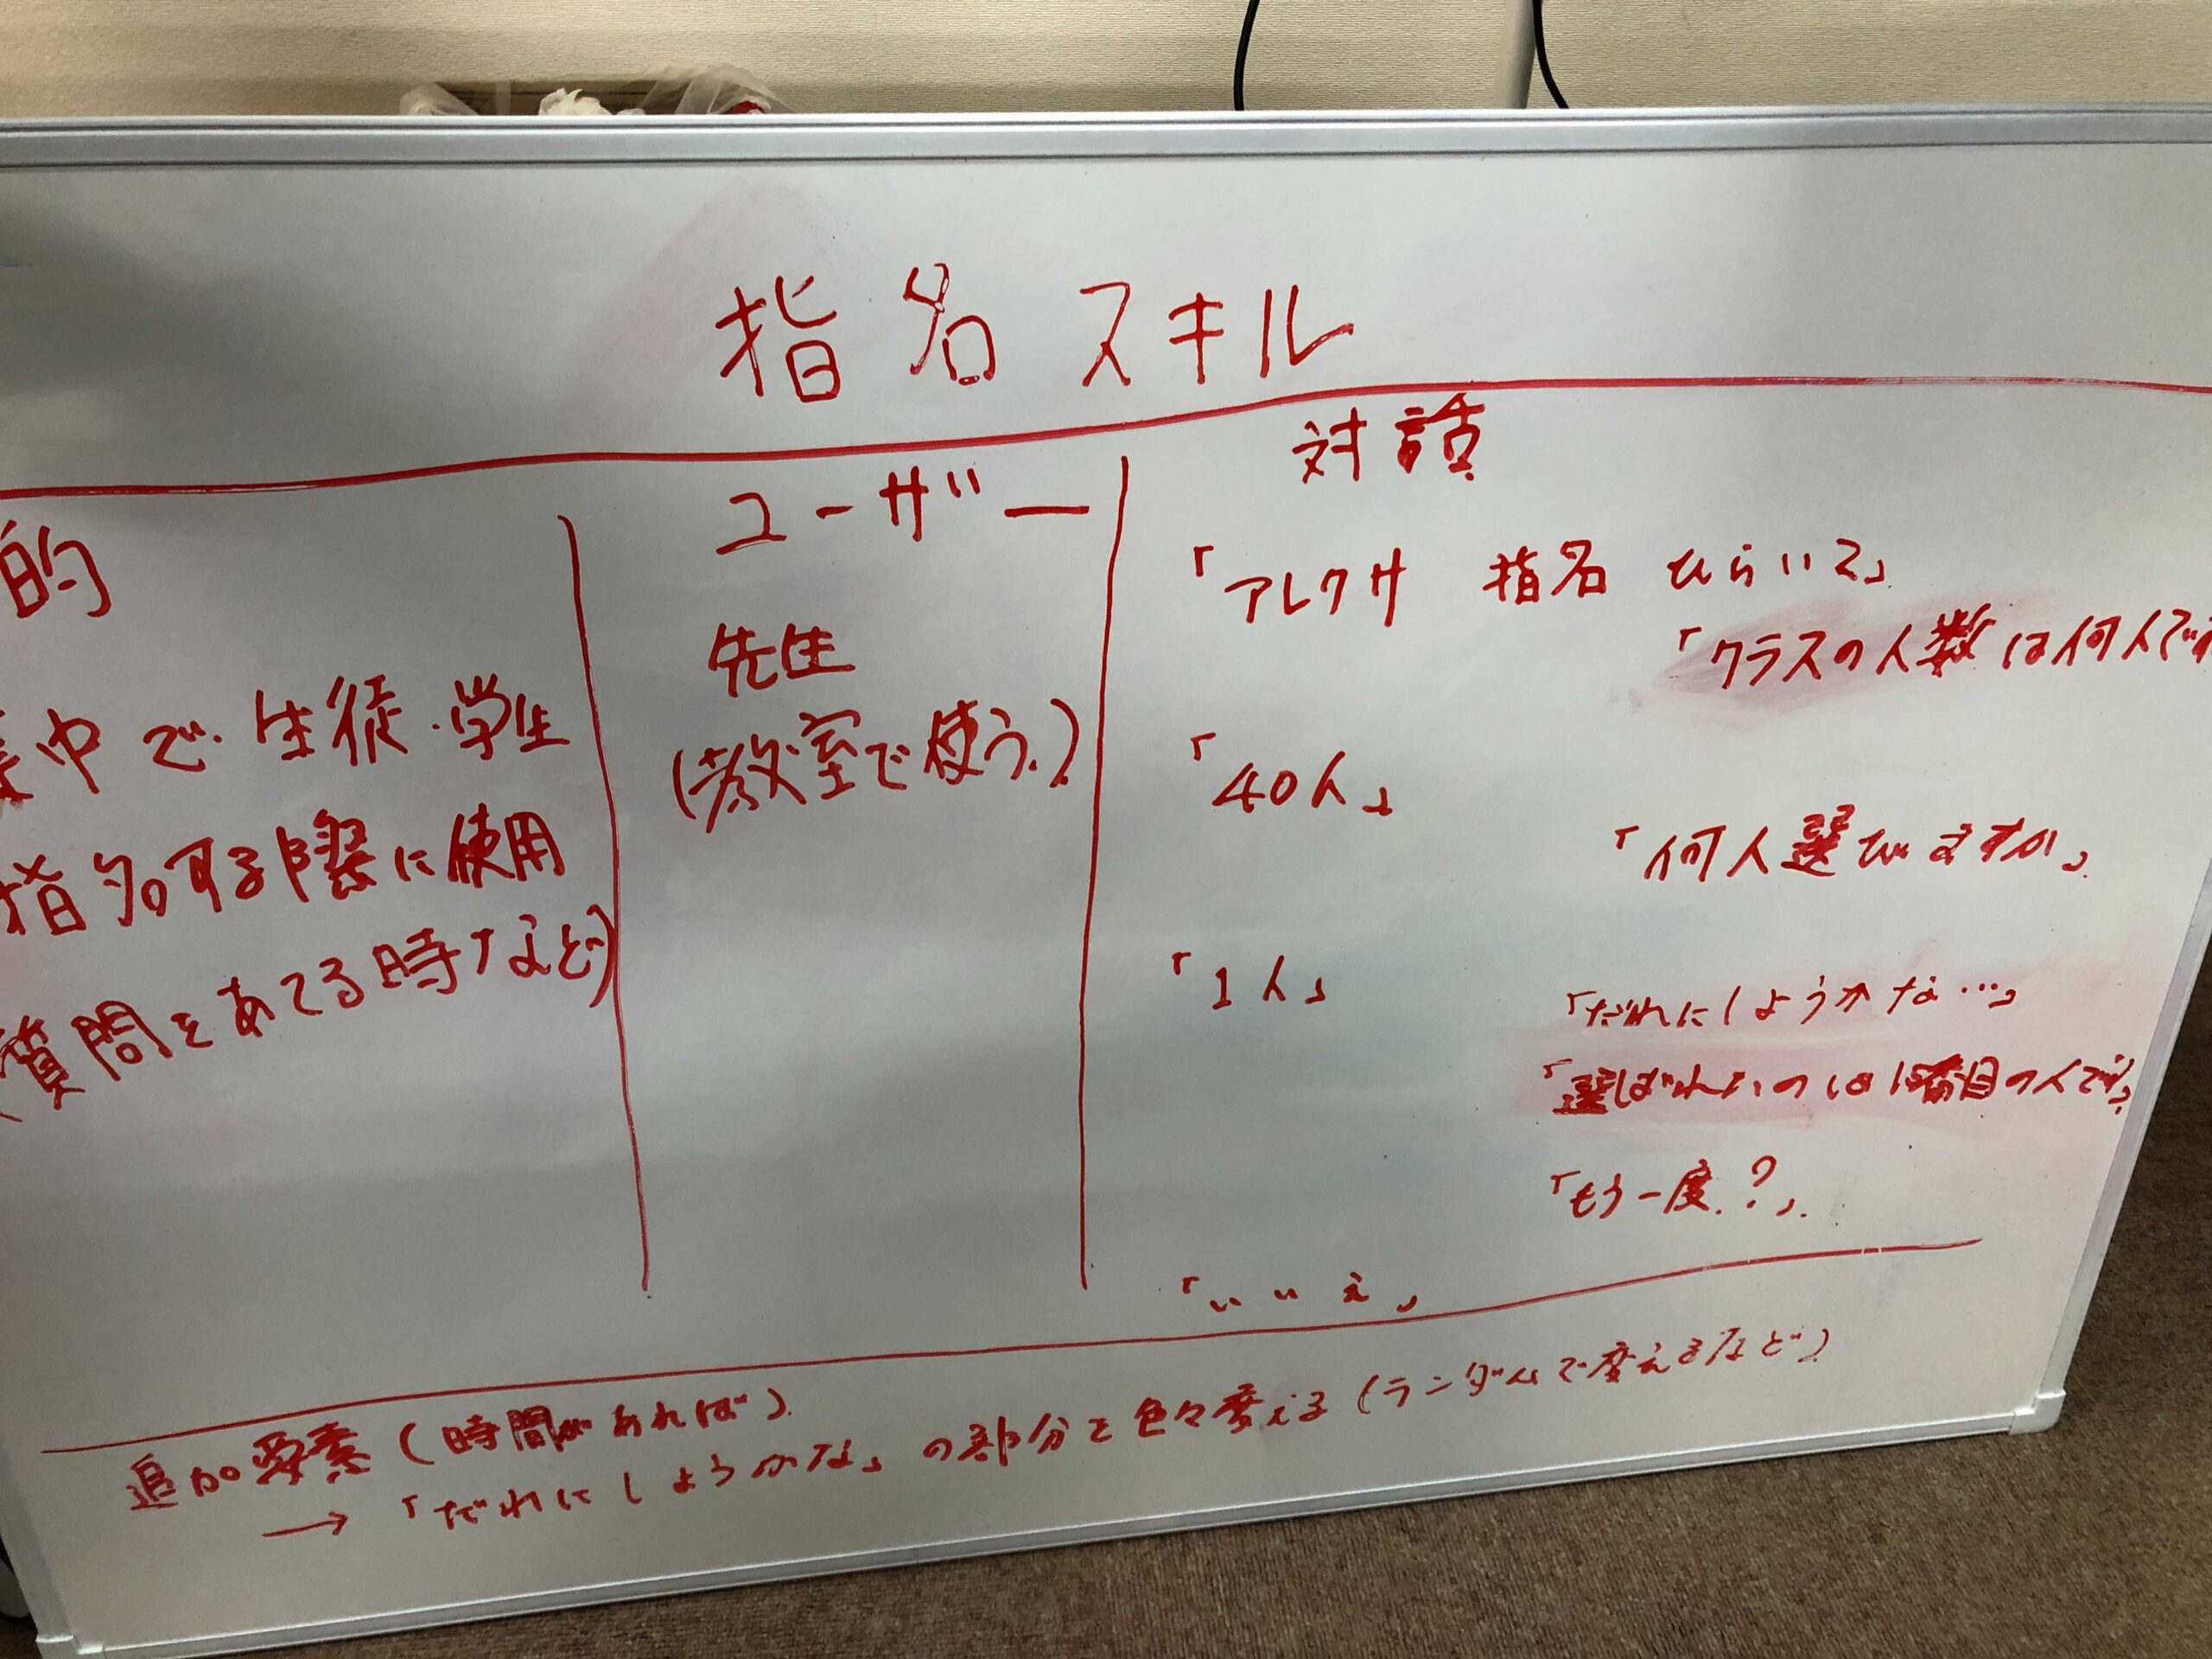 指名スキル
的
中で生徒・学生
指名する際に使用
質問をあてる時など)
ユーザー
先生
(教室で使う。)
対話
「アレクサ 指名 ひらいて」
「クラスの人数は何人です
「40人」
「何人選びますか」
「1人」
「だれにしようかな…」
「選ばれたのは15番目の人です」
「もう一度?」
「いいえ」
追加要素(時間があれば)
→「だれにしようかな」の部分を色々変える(ランダムで変えるなど)